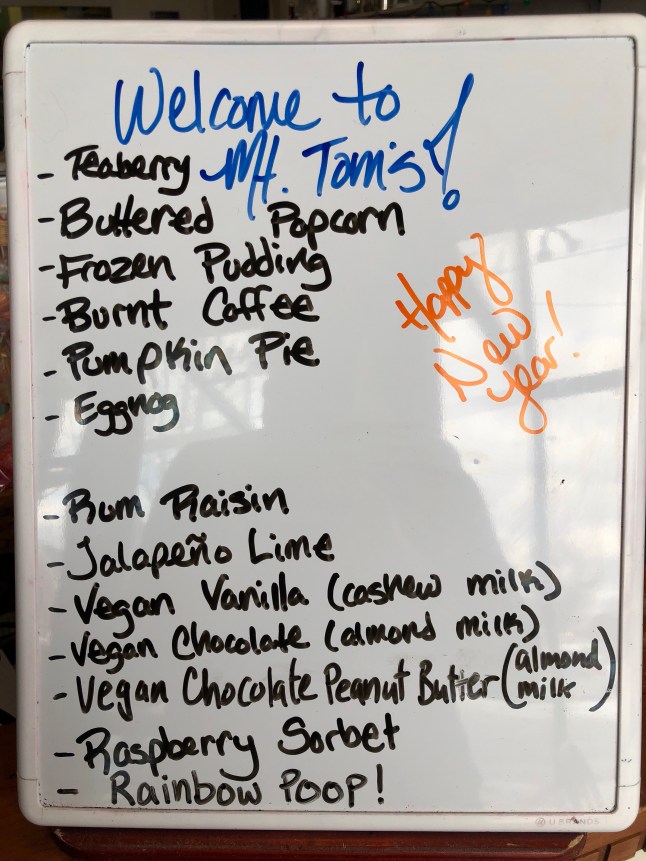 Welcome to
Mt. Tom's!
- Teaberry
- Buttered Popcorn
- Frozen Pudding
- Burnt Coffee
- Pumpkin Pie
- Eggnog
Happy
New
Year!
- Rum Raisin
- Jalapeño Lime
- Vegan Vanilla (cashew milk)
- Vegan Chocolate (almond milk)
- Vegan Chocolate Peanut Butter (almond milk)
- Raspberry Sorbet
- Rainbow Poop!
U BRANDS